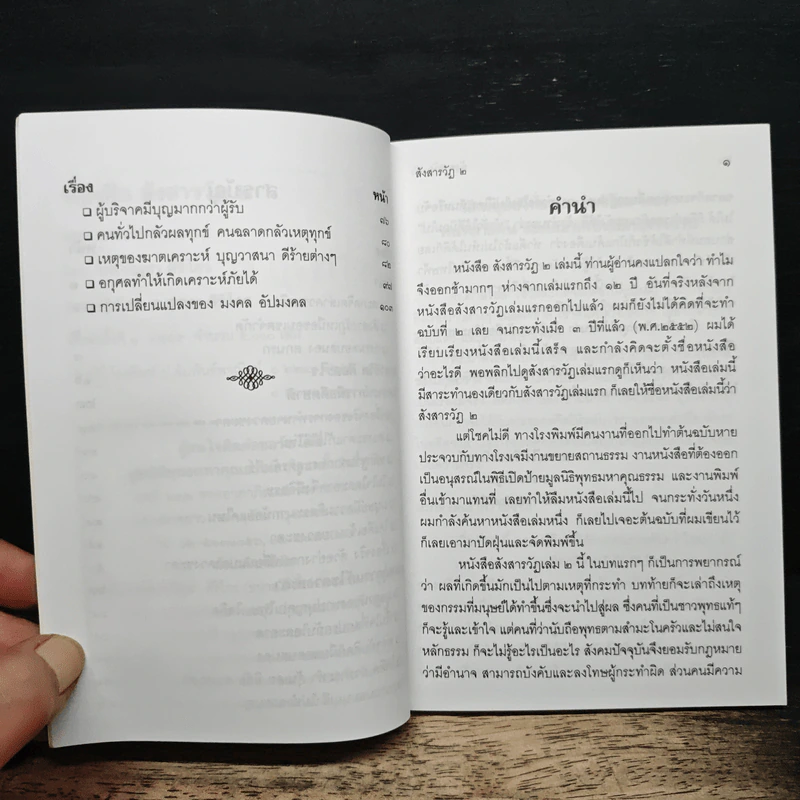 เรื่อง หน้า
❏ ผู้บริจาคมีบุญมากกว่าผู้รับ ๗๖
❏ คนทั่วไปกลัวผลทุกข์ คนฉลาดกลัวเหตุทุกข์ ๘๐
❏ เหตุของฆาตเคราะห์ บุญวาสนา ดีร้ายต่างๆ ๘๒
❏ อกุศลทำให้เกิดเคราะห์ภัยได้ ๙๗
❏ การเปลี่ยนแปลงของ มงคล อัปมงคล ๑๐๓
สังสารวัฏ ๒ ๑
คำนำ
หนังสือ สังสารวัฏ ๒ เล่มนี้ ท่านผู้อ่านคงแปลกใจว่า ทำไม
จึงออกช้ามากๆ ห่างจากเล่มแรกถึง ๑๒ ปี อันที่จริงหลังจาก
หนังสือสังสารวัฏเล่มแรกออกไปแล้ว ผมก็ยังไม่ได้คิดที่จะทำ
ฉบับที่ ๒ เลย จนกระทั่งเมื่อ ๓ ปีที่แล้ว (พ.ศ.๒๕๕๒) ผมได้
เรียบเรียงหนังสือเล่มนี้เสร็จ และกำลังคิดจะตั้งชื่อหนังสือ
ว่าอะไรดี พอพลิกไปดูสังสารวัฏเล่มแรกดูก็เห็นว่า หนังสือเล่มนี้
มีสาระทำนองเดียวกับสังสารวัฏเล่มแรก ก็เลยให้ชื่อหนังสือเล่มนี้ว่า
สังสารวัฏ ๒
แต่โชคไม่ดี ทางโรงพิมพ์มีคนงานที่ออกไปทำต้นฉบับหาย
ประจวบกับทางโรงเจมีงานขยายสถานธรรม งานหนังสือที่ต้องออก
เป็นอนุสรณ์ในพิธีเปิดป้ายมูลนิธิพุทธมหาคุณธรรม และงานพิมพ์
อื่นเข้ามาแทนที่ เลยทำให้ลืมหนังสือเล่มนี้ไป จนกระทั่งวันหนึ่ง
ผมกำลังค้นหาหนังสือเล่มหนึ่ง ก็เลยไปเจอะต้นฉบับที่ผมเขียนไว้
ก็เลยเอามาปัดฝุ่นและจัดพิมพ์ขึ้น
หนังสือสังสารวัฏเล่ม ๒ นี้ ในบทแรกๆ ก็เป็นการพยากรณ์
ว่า ผลที่เกิดขึ้นมักเป็นไปตามเหตุที่กระทำ บทท้ายก็จะเล่าถึงเหตุ
ของกรรมที่มนุษย์ได้ทำขึ้นซึ่งจะนำไปสู่ผล ซึ่งคนที่เป็นชาวพุทธแท้ๆ
ก็จะรู้และเข้าใจ แต่คนที่ว่านับถือพุทธตามสำมะโนครัวและไม่สนใจ
หลักธรรม ก็จะไม่รู้อะไรเป็นอะไร สังคมปัจจุบันจึงยอมรับกฎหมาย
ว่ามีอำนาจ สามารถบังคับและลงโทษผู้กระทำผิด ส่วนคนมีความ